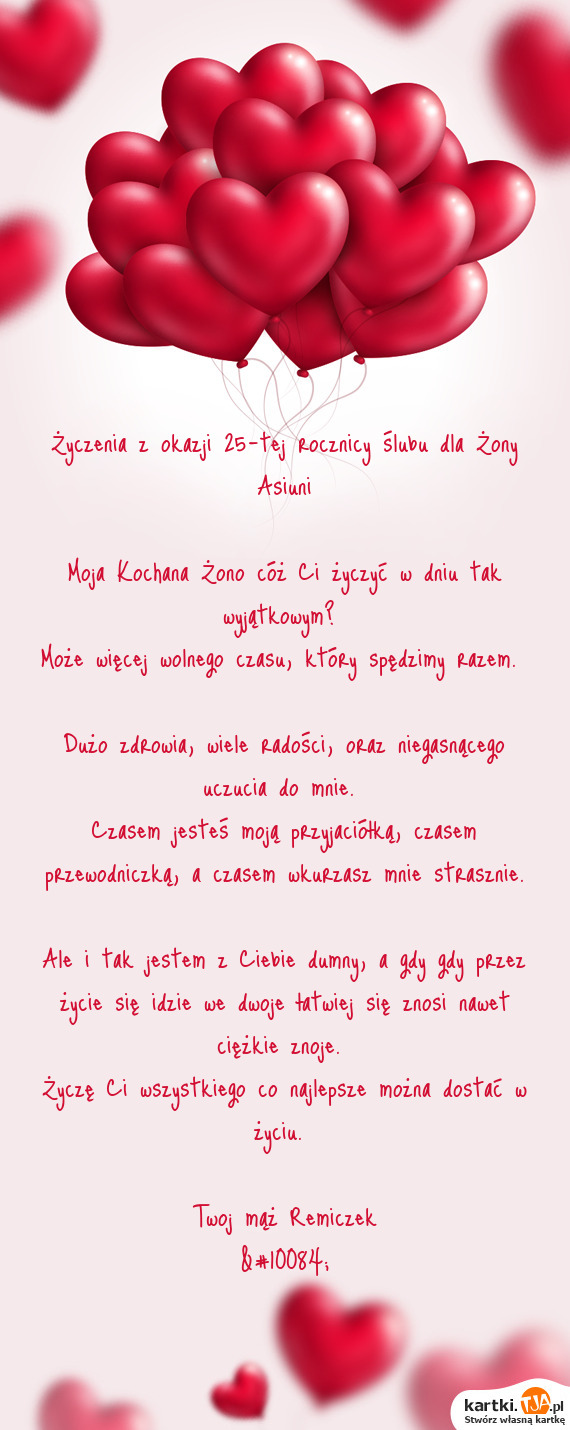 Życzenia z okazji 25-tej rocznicy ślubu dla Żony
Asiuni
Moja Kochana Żono cóż Ci życzyć w dniu tak
wyjątkowym?
Może więcej wolnego czasu, który spędzimy razem.
Dużo zdrowia, wiele radości, oraz niegasnącego
uczucia do mnie.
Czasem jesteś moją przyjaciółką, czasem
przewodniczką, a czasem wkurzasz mnie strasznie.
Ale i tak jestem z Ciebie dumny, a gdy gdy przez
życie się idzie we dwoje łatwiej się znosi nawet
ciężkie znoje.
Życzę Ci wszystkiego co najlepsze można dostać w
życiu.
Twoj mąż Remiczek
&#10084;
kartki.TJA.pl
Stwórz własną kartkę